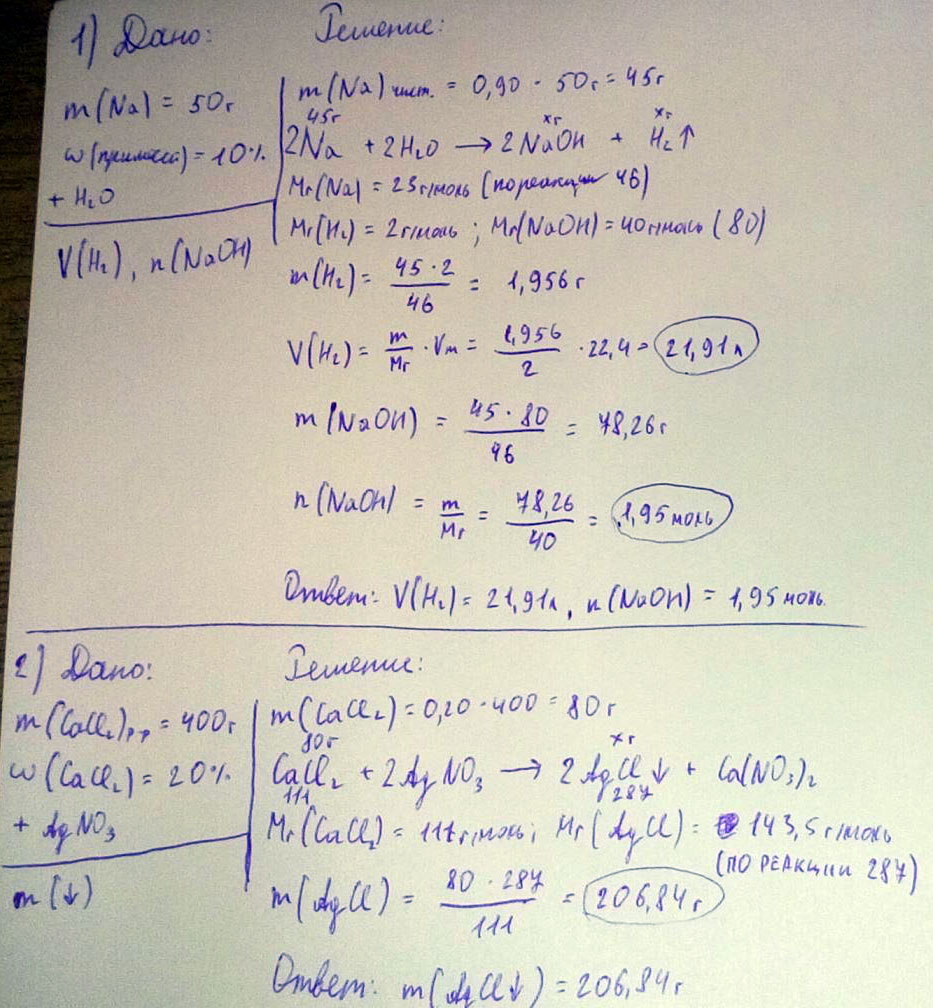 1) Дано: Решение:
m(Na) = 50г
ω(примесей) = 10%
+ H₂O
V(H₂), n(NaOH)
m(Na) чист. = 0,90 · 50г = 45г
45г xг xг
2Na + 2H₂O → 2NaOH + H₂↑
Mr(Na) = 23г/моль (по реакции 46)
Mr(H₂) = 2г/моль ; Mr(NaOH) = 40г/моль (80)
m(H₂) = 45·2/46 = 1,956г
V(H₂) = m/Mr · Vm = 1,956/2 · 22,4 = 21,91л
m(NaOH) = 45·80/46 = 78,26г
n(NaOH) = m/Mr = 78,26/40 = 1,95моль
Ответ: V(H₂) = 21,91л, n(NaOH) = 1,95моль.
2) Дано: Решение:
m(CaCl₂)р-р = 400г
ω(CaCl₂) = 20%
+ AgNO₃
m(↓)
m(CaCl₂) = 0,20·400 = 80г
80г xг
CaCl₂ + 2AgNO₃ → 2AgCl↓ + Ca(NO₃)₂
111 287
Mr(CaCl₂) = 111г/моль; Mr(AgCl) = 143,5г/моль
(ПО РЕАКЦИИ 287)
m(AgCl) = 80·287/111 = 206,84г
Ответ: m(AgCl↓) = 206,84г